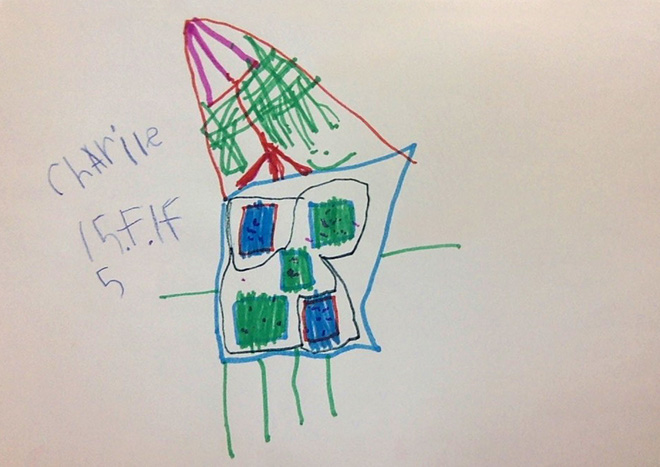 CHArlie
15.F.1F
5